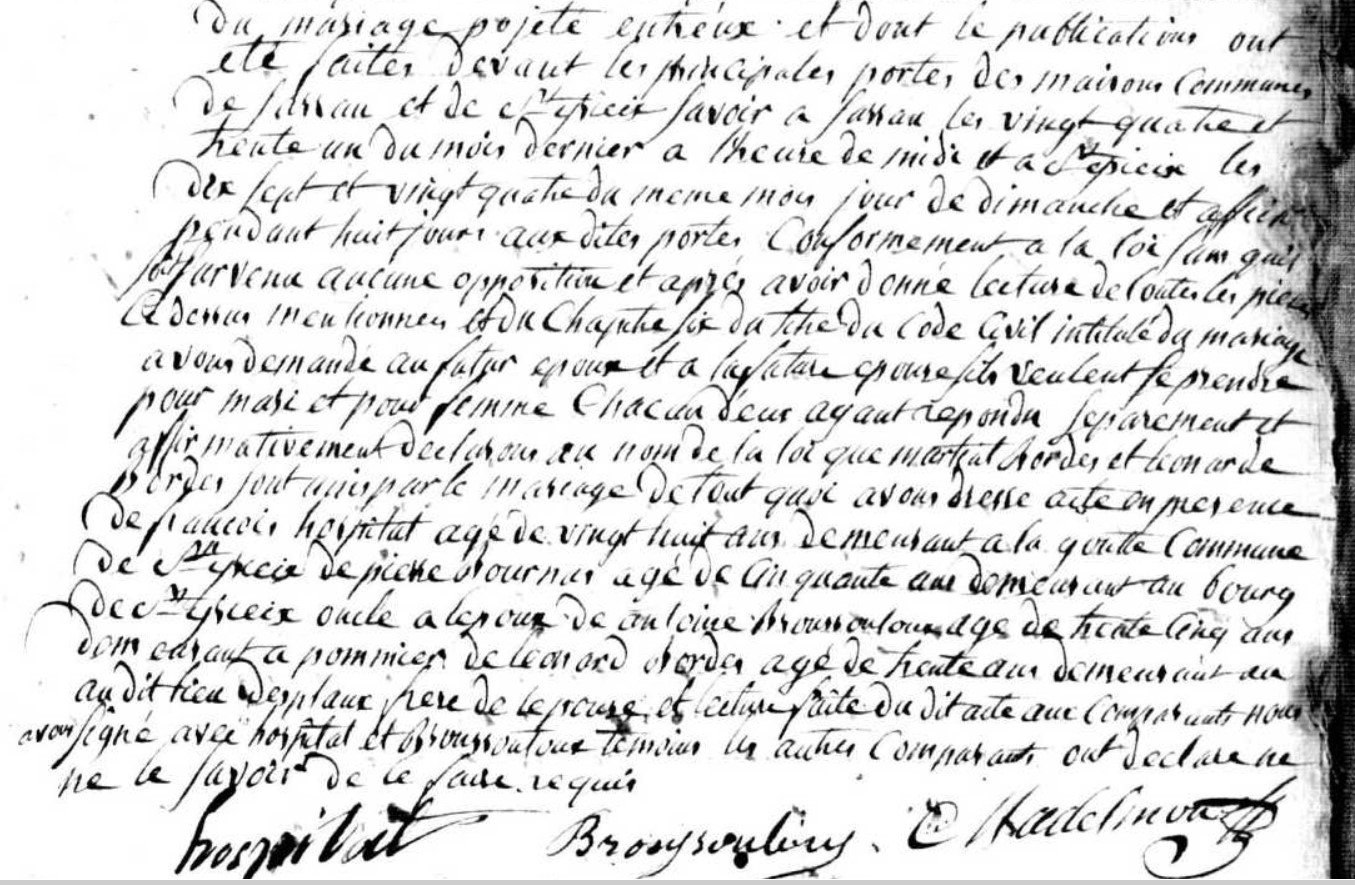 du mariage pojeté entreux et dont le publications ont
été faites devant les principales portes des maisons Communes
de Jarnau et de St yrieix savoir a les vingt quatre et
trente un du mois dernier a l'heure de midi et a St yrieix les
dix sept et vingt quatre du meme mois jour de dimanche et
pendant huit jours aux dites portes Conformement a la loi sans quil
soit survenu aucune opposition et aprés avoir donné lecture de toutes les pieces
Ci dessus mentionnees et du Chapitre six du titre du Code Civil intitulé du mariage
avons demandé au futur epoux et a la future epouse sils veulent se prendre
pour mari et pour femme Chacun deux ayant repondu separement et
affirmativement declarons au nom de la loi que martial bordes et leonarde
Bordes sont unis par le mariage de tout quoi avons dressé acte en presence
de francois hospital agé de vingt huit ans demeurant a la goutte Commune
de St yrieix de pierre agé de Cinquante ans demeurant au bourg
de St yrieix oncle a lepoux de antoine Broussouloux age de trente Cinq ans
demeurant a pommier de leonard bordes agé de trente ans demeurant au
au dit lieu Desplaux frere de lepouse et lecture faite du dit acte aux Comparants nous
avons signé avec hospital et Broussouloux temoins les autres Comparants ont declare ne
ne le savoir de ce faire requis
hospital Broussouloux